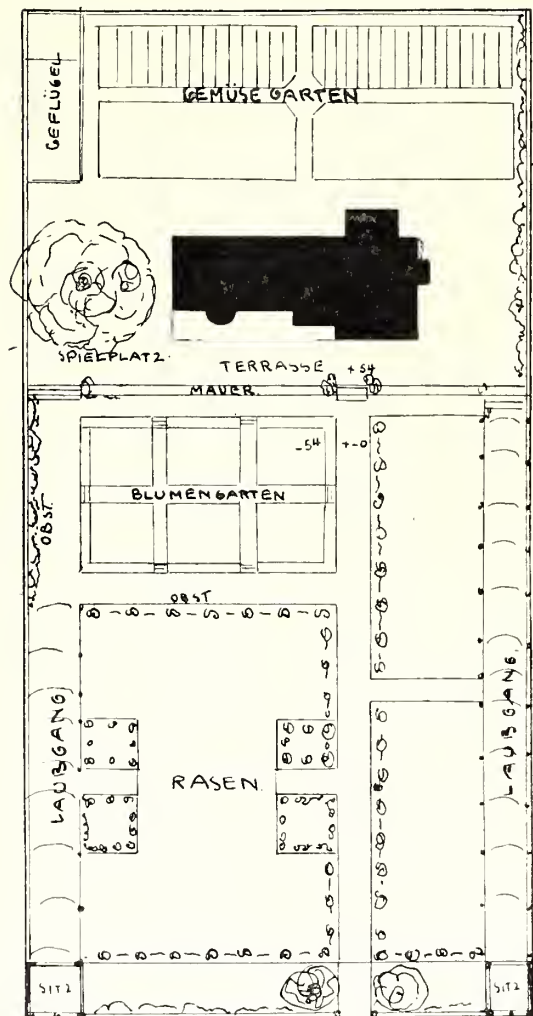 GEFLÜGEL
GEMÜSE GARTEN
SPIELPLATZ.
TERRASSE
+54
MAUER.
-54
+-0
BLUMENGARTEN
OBST.
OBST
LAUBGANG
LAUBGANG.
RASEN.
SITZ
SITZ